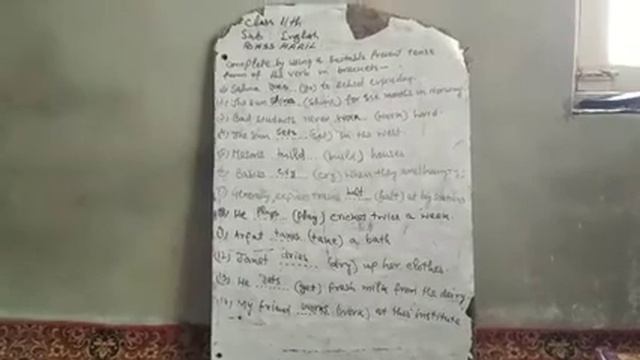 Class 11th
Sub: English
Complete by using a suitable Present tense
form of the verb in brackets—
Salma goes (go) to school everyday.
The sun shine (shine) for six months in Norway
Bad students never work (work) hard.
The sun sets (set) in the west.
Masons build... (build) houses
Babies cry ... (cry) when they
Generally express trains halt ... (halt) at big stations
He plays ... (play) cricket twice a week.
Arfat takes ... (take) a bath
(12) Janet dries (dry) up her clothes.
(13) He gets (get) fresh milk from the dairy
My friend works (work) at this institute